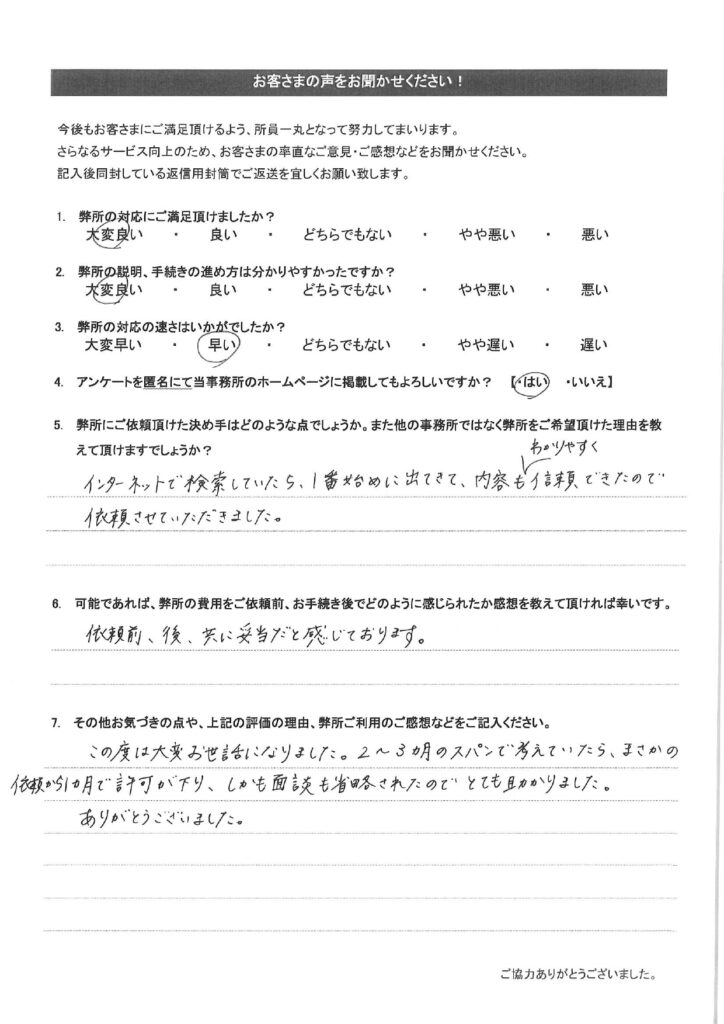 お客さまの声をお聞かせください！
今後もお客さまにご満足頂けるよう、所員一丸となって努力してまいります。
さらなるサービス向上のため、お客さまの率直なご意見・ご感想などをお聞かせください。
記入後同封している返信用封筒でご返送を宜しくお願い致します。
1. 弊所の対応にご満足頂けましたか？
大変良い ・ 良い ・ どちらでもない ・ やや悪い ・ 悪い
2. 弊所の説明、手続きの進め方は分かりやすかったですか？
大変良い ・ 良い ・ どちらでもない ・ やや悪い ・ 悪い
3. 弊所の対応の速さはいかがでしたか？
大変早い ・ 早い ・ どちらでもない ・ やや遅い ・ 遅い
4. アンケートを匿名にて当事務所のホームページに掲載してもよろしいですか？ 【・はい ・いいえ】
5. 弊所にご依頼頂けた決め手はどのような点でしょうか。また他の事務所ではなく弊所をご希望頂けた理由を教
えて頂けますでしょうか？
わかりやすく
インターネットで検索していたら、1番始めに出てきて、内容も信頼できたので
依頼させていただきました。
6. 可能であれば、弊所の費用をご依頼前、お手続き後でどのように感じられたか感想を教えて頂ければ幸いです。
依頼前、後、共に妥当だと感じております。
7. その他お気づきの点や、上記の評価の理由、弊所ご利用のご感想などをご記入ください。
この度は大変お世話になりました。2～3カ月のスパンで考えていたら、まさかの
依頼から1カ月で許可が下り、しかも面談も省略されたのでとても助かりました。
ありがとうございました。
ご協力ありがとうございました。